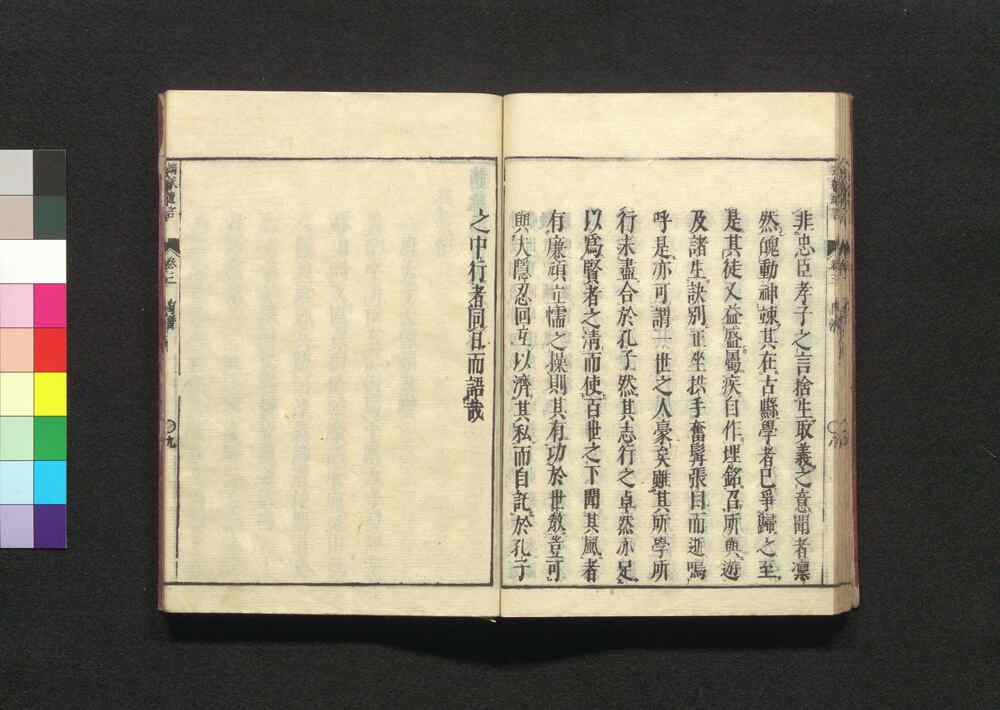 非忠臣孝子之言捨生取義之意聞者凛
然魄動神竦其在古縣學者已爭歸之至
是其徒又益盛屬疾自作埋銘召所與遊
及諸生訣別正坐拱手奮髯張目而逝嗚
呼是亦可謂一世之人豪矣雖其所學所
行未盡合於孔子然其志行之卓然亦足
以爲賢者之清而使百世之下聞其風者
有廉頑立懦之操則其有功於世教豈可
與夫隱忍回互以濟其私而自託於孔子
之中行者同日而語哉
卷三
九